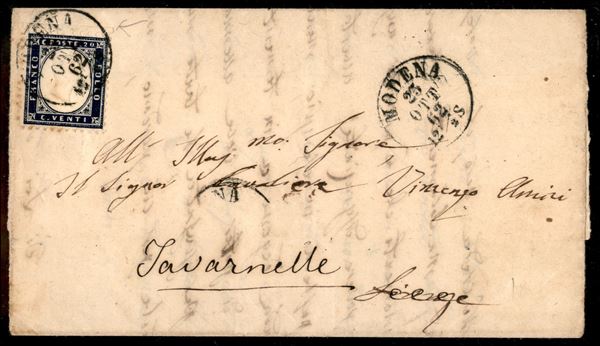 MODENA
C. POSTE 20
FRANCO BOLLO
C. VENTI
MODENA
23
OTT
62
12 S
All' Ill mo. Signore
Il Signor Cavaliere Vincenzo
NA
Tavarnelle
Firenze